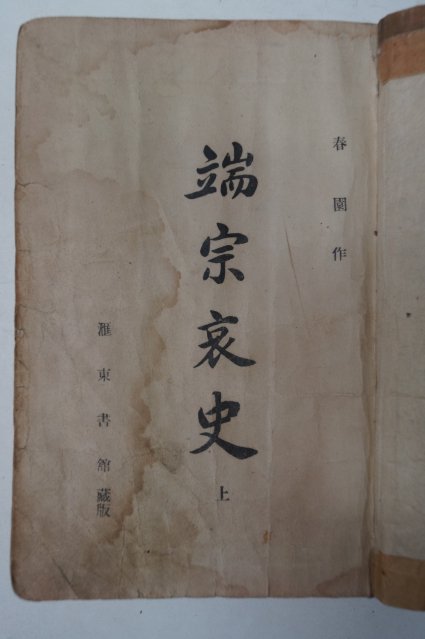 春園作
端宗哀史 上
滙東書館藏版